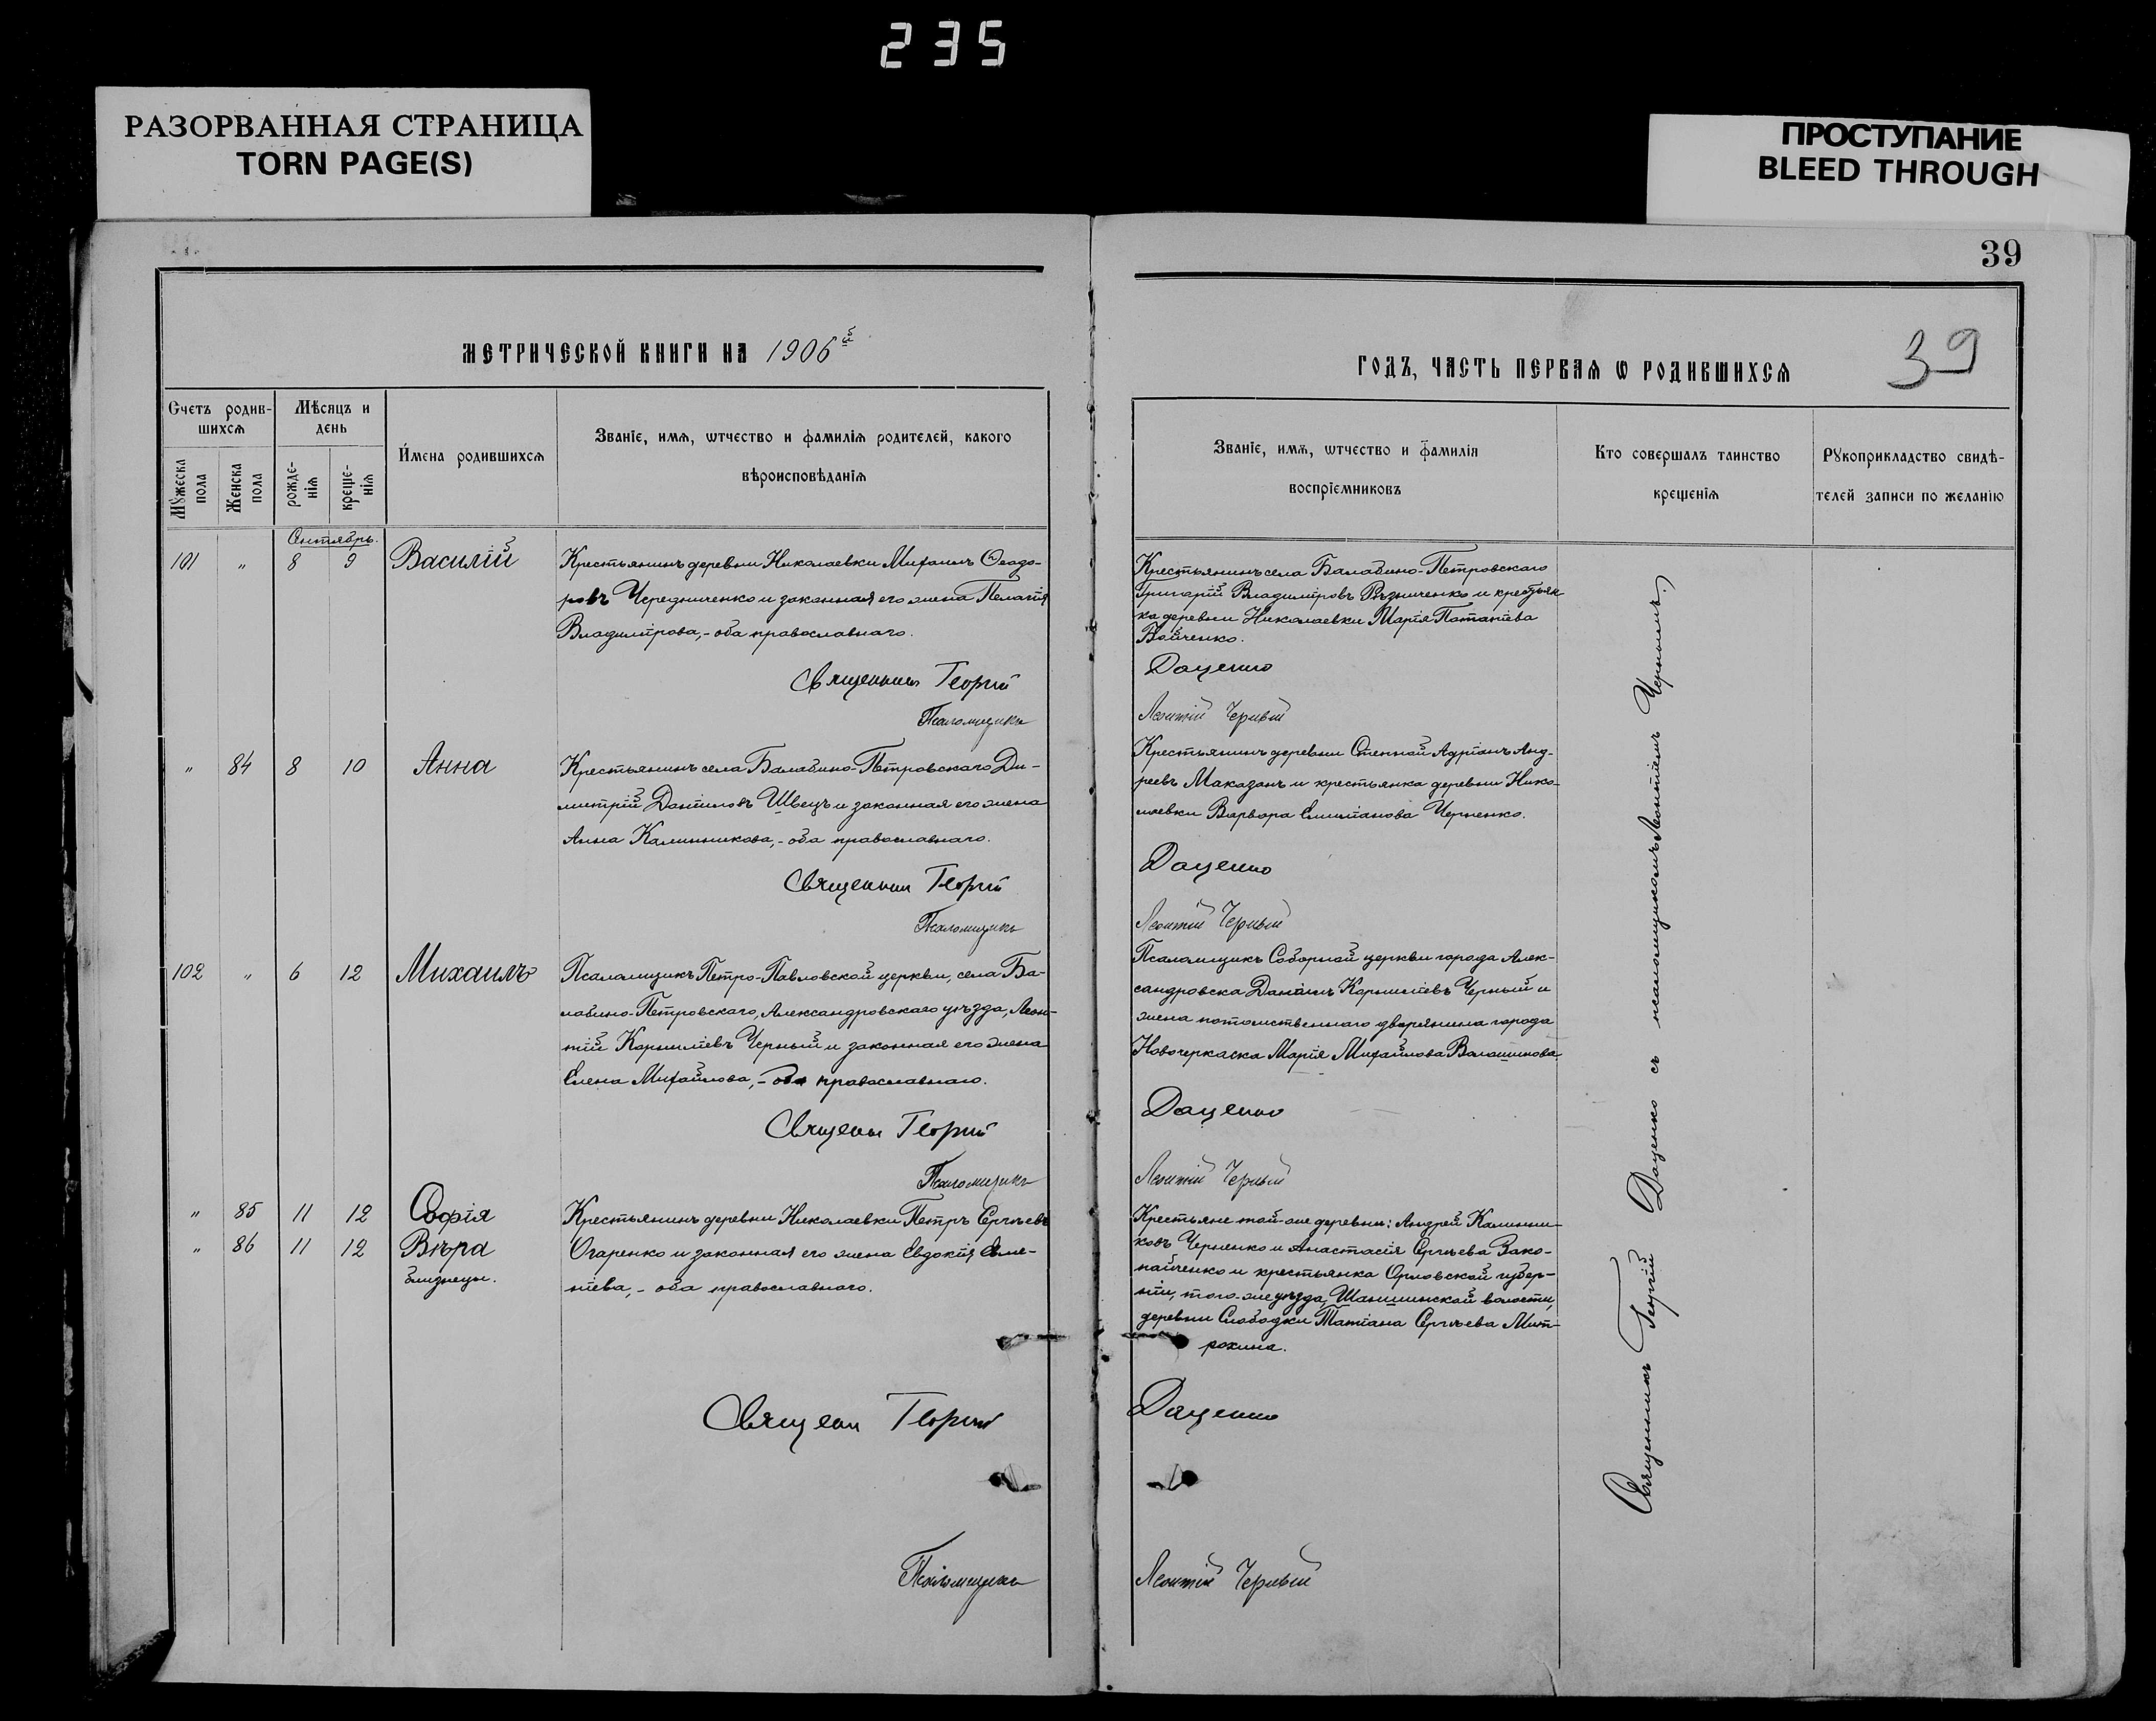 235
РАЗОРВАННАЯ СТРАНИЦА
TORN PAGE(S)
ПРОСТУПАНИЕ
BLEED THROUGH
39
39
МЕТРИЧЕСКОЙ КНИГИ НА 1906й
ГОДЪ, ЧАСТЬ ПЕРВАѦ Ѡ РОДИВШИХСѦ
Счетъ родив-
шихсѧ
Мꙋжеска пола
Женска пола
Мѣсяцъ и
день
рожде-
нїѧ
креще-
нїѧ
Имена родившихсѧ
Званїе, имѧ, ѡтчество и фамилїѧ родителей, какого
вѣроисповѣданїѧ
Званїе, имѧ, ѡтчество и фамилїѧ
воспрїемниковъ
Кто совершалъ таинство
крещенїѧ
Рꙋкоприкладство свидѣ-
телей записи по желанїю
Сентябрь.
101 " 8 9 Василій
Крестьянинъ деревни Николаевки Михаилъ Ѳеодо-
ровъ Чередниченко и законная его жена Пелагія
Владимірова, - оба православнаго.
Священникъ Георгій
Псаломщикъ
Крестьянинъ села Балабино-Петровскаго
Григорій Владиміровъ Рѣзниченко и крестьян-
ка деревни Николаевки Марія Потапіева
Войченко.
Даценко
Леонтій Черный
" 84 8 10 Анна
Крестьянинъ села Балабино-Петровскаго Ди-
митрій Даніиловъ Швецъ и законная его жена
Анна Калинникова, - оба православнаго.
Священникъ Георгій
Псаломщикъ
Крестьянинъ деревни Степной Адріанъ Анд-
реевъ Маказанъ и крестьянка деревни Нико-
лаевки Варвара Емиліанова Черненко.
Даценко
Леонтій Черный
102 " 6 12 Михаилъ
Псаломщикъ Петро-Павловской церкви, села Ба-
лабино-Петровскаго, Александровскаго уѣзда, Леон-
тій Корниліевъ Черный и законная его жена
Елена Михайлова, - оба православнаго.
Священ Георгій
Псаломщикъ
Псаломщикъ Соборной церкви города Алек-
сандровска Даніилъ Корниліевъ Черный и
жена потомственнаго дворянина города
Новочеркаска Марія Михайлова Волошинова
Даценко
Леонтій Черный
" 85 11 12 Софія
" 86 11 12 Вѣра
близнецы.
Крестьянинъ деревни Николаевки Петръ Сергѣевъ
Огаренко и законная его жена Евдокія
тіева, - оба православнаго.
Священ Георгій
Псаломщикъ
Крестьяне той-же деревни: Андрей Калинни-
ковъ Черненко и Анастасія Сергѣева Зако-
пайченко и крестьянка Орловской губер-
ніи, того-же уѣзда, волости,
деревни Слободки Татіана Сергѣева Мит-
рохина.
Даценко
Леонтій Черный
Священникъ Георгій Даценко съ псаломщикомъ Леонтіемъ Чернымъ.